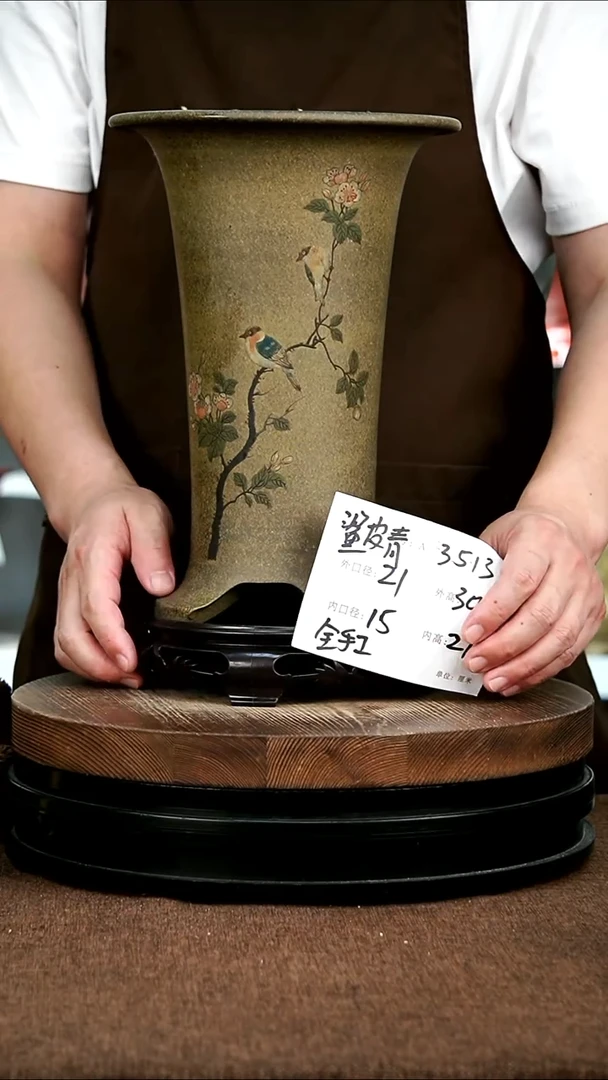 鲨皮青 3513
外口径: 21 外高 30
内口径: 15 内高: 2
全手工
单位: 厘米